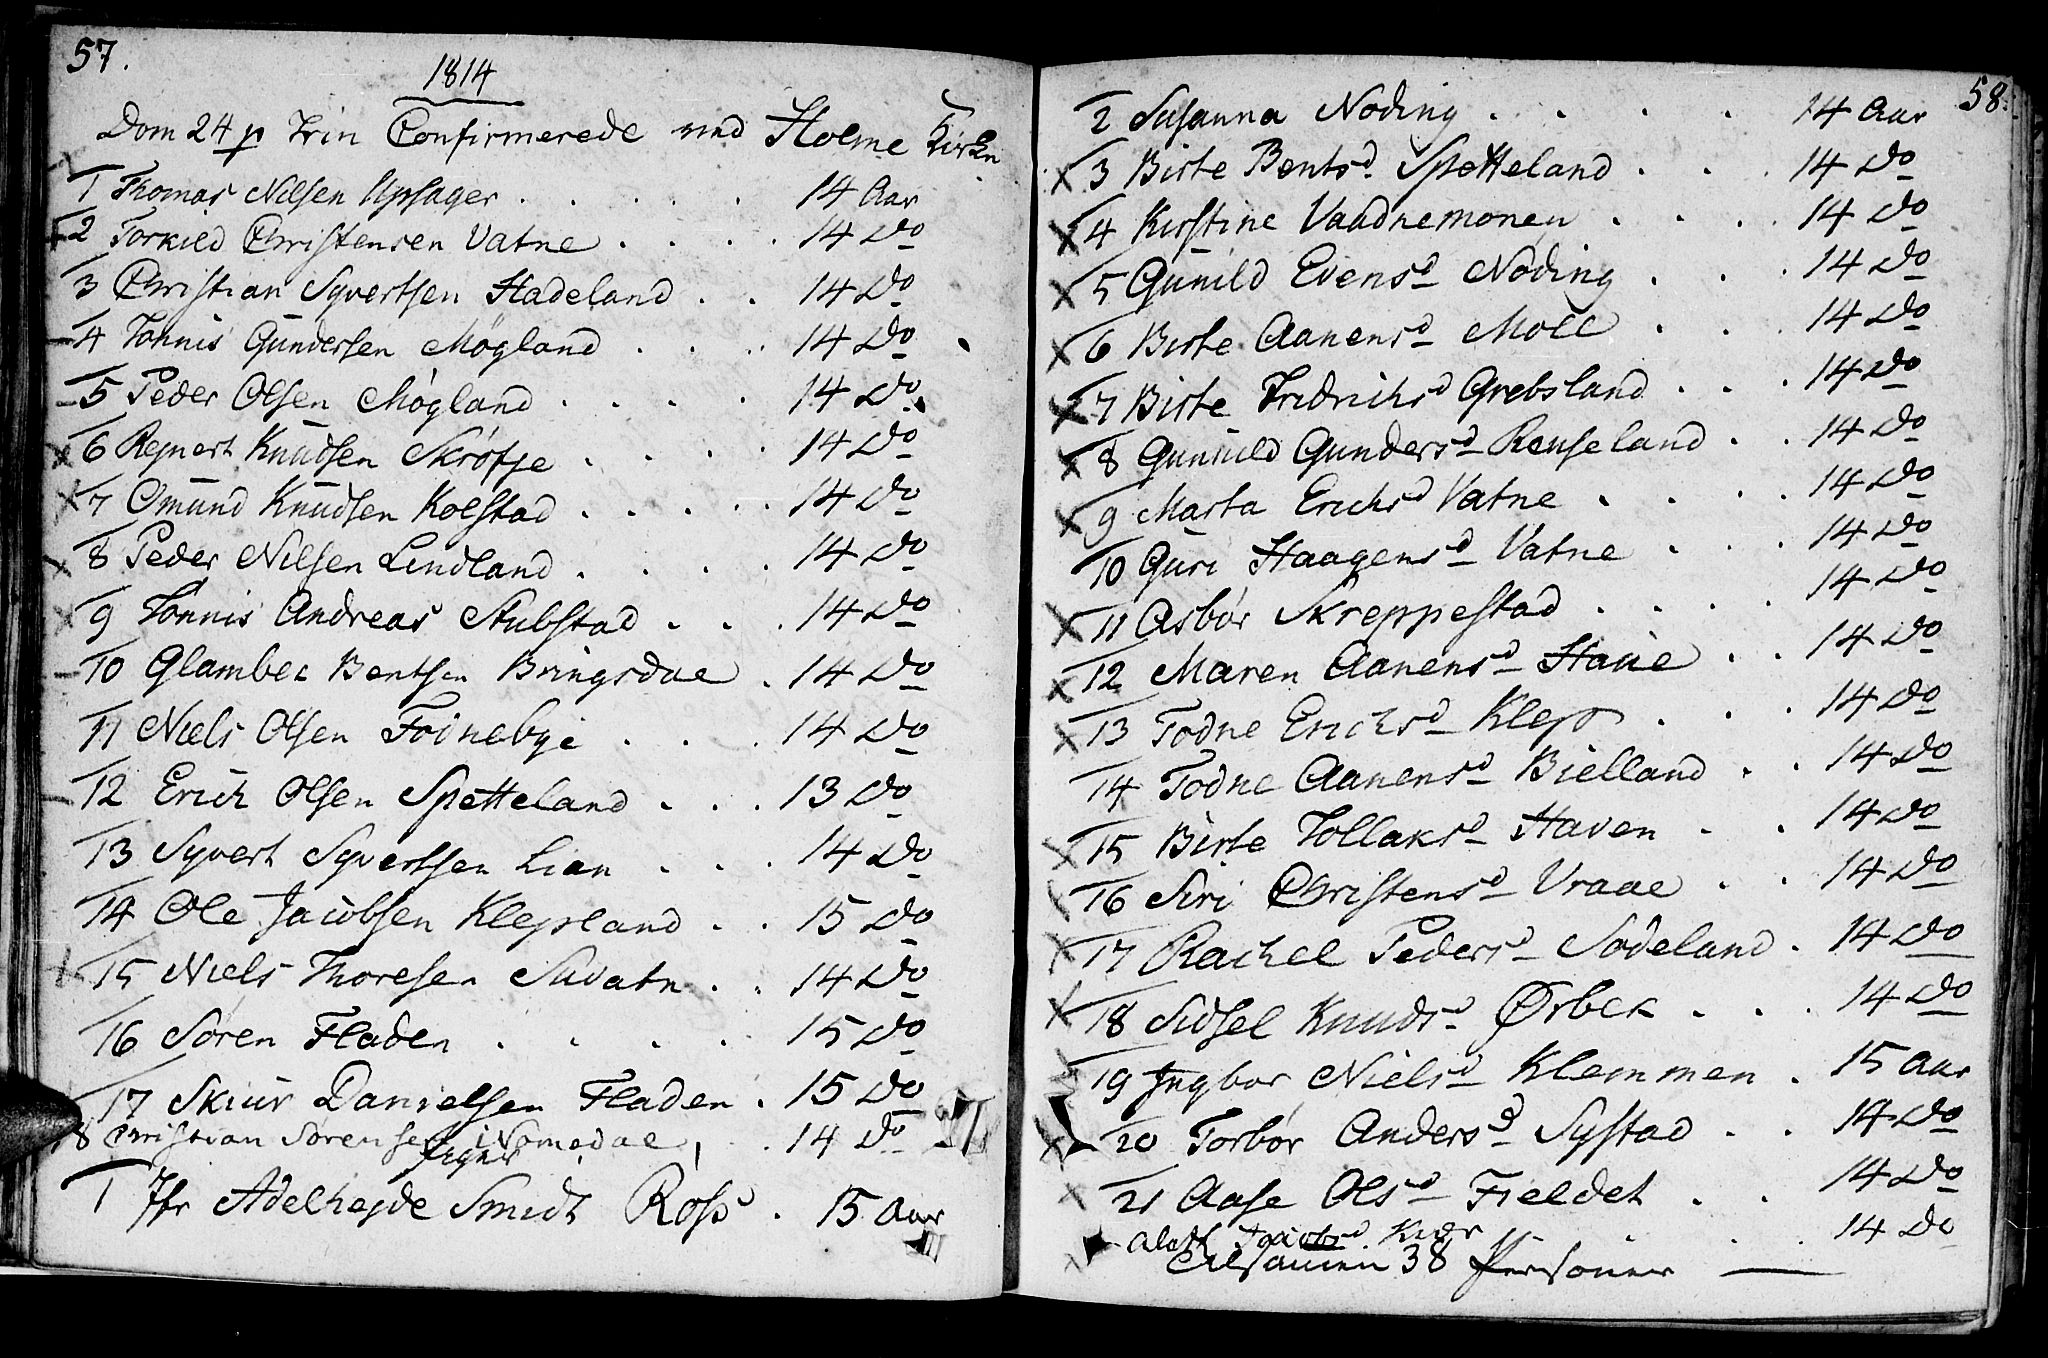 57.
1814
Dom 24 p Trin Confirmerede ved Holme Kirken
1 Thomas Nilsen Upsager . . . . 14 Aar
2 Torkild Christensen Vatne . . . 14 Do
3 Christian Syvertsen Hadeland . . 14 Do
4 Tønnis Gundersen Møgland . . . 14 Do
5 Peder Olsen Møgland . . . . 14 Do
6 Reynert Knudsen Skrøfje . . . . 14 Do
7 Omund Knudsen Kolstad . . . . . 14 Do
8 Peder Nilsen Lindland . . . . 14 Do
9 Tønnis Andreas Stubstad . . . 14 Do
10 Glambek Bentsen Bringsdae . 14 Do
11 Niels Olsen Foinebye . . . 14 Do
12 Erich Olsen Spetteland . . . 13 Do
13 Syvert Syvertsen Lian . . . 14 Do
14 Ole Jacobsen Klepland . . 15 Do
15 Niels Thoresen Suvatn . . 14 Do
16 Søren Fladen . . . . 15 Do
17 Skiur Danielsen Fladen . 15 Do
18 Christian Sørensen i Nomedae, . 14 Do
Piger
1 Jfr Adelheyde Smidt Ross . 15 Aar
58.
2 Susanna Noding . . . . 14 Aar
3 Birte Bentsd Spetteland . . . 14 Do
4 Kirstine Vaadnemonen . . . 14 Do
5 Gunild Evensd Nøding . . . 14 Do
6 Birte Aanensd Moll . . . 14 Do
7 Birte Fredrichsd Grebsland . . . 14 Do
8 Gunuld Gundersd Reuseland . . 14 Do
9 Marta Erichsd Vatne . . . . 14 Do
10 Guri Haagensd Vatne . . . 14 Do
11 Asbør Skreppestad . . . . 14 Do
12 Maren Aanensd Haue . . 14 Do
13 Todne Erichsd Klep . . . 14 Do
14 Todne Aanensd Bielland . . 14 Do
15 Birte Tollaksd Haven . . 14 Do
16 Siri Christensd Vraae . . 14 Do
17 Rachel Pedersd Sødeland . 14 Do
18 Sidsel Knudsd Ørbek . . . 14 Do
19 Ingbor Nielsd Klemmen . 15 Aar
20 Torbør Andersd Systad . . 14 Do
21 Aase Olsd Fieldet . . 14 Do
Jacobsd . . . 14 Do
Tilsamen 38 Personer